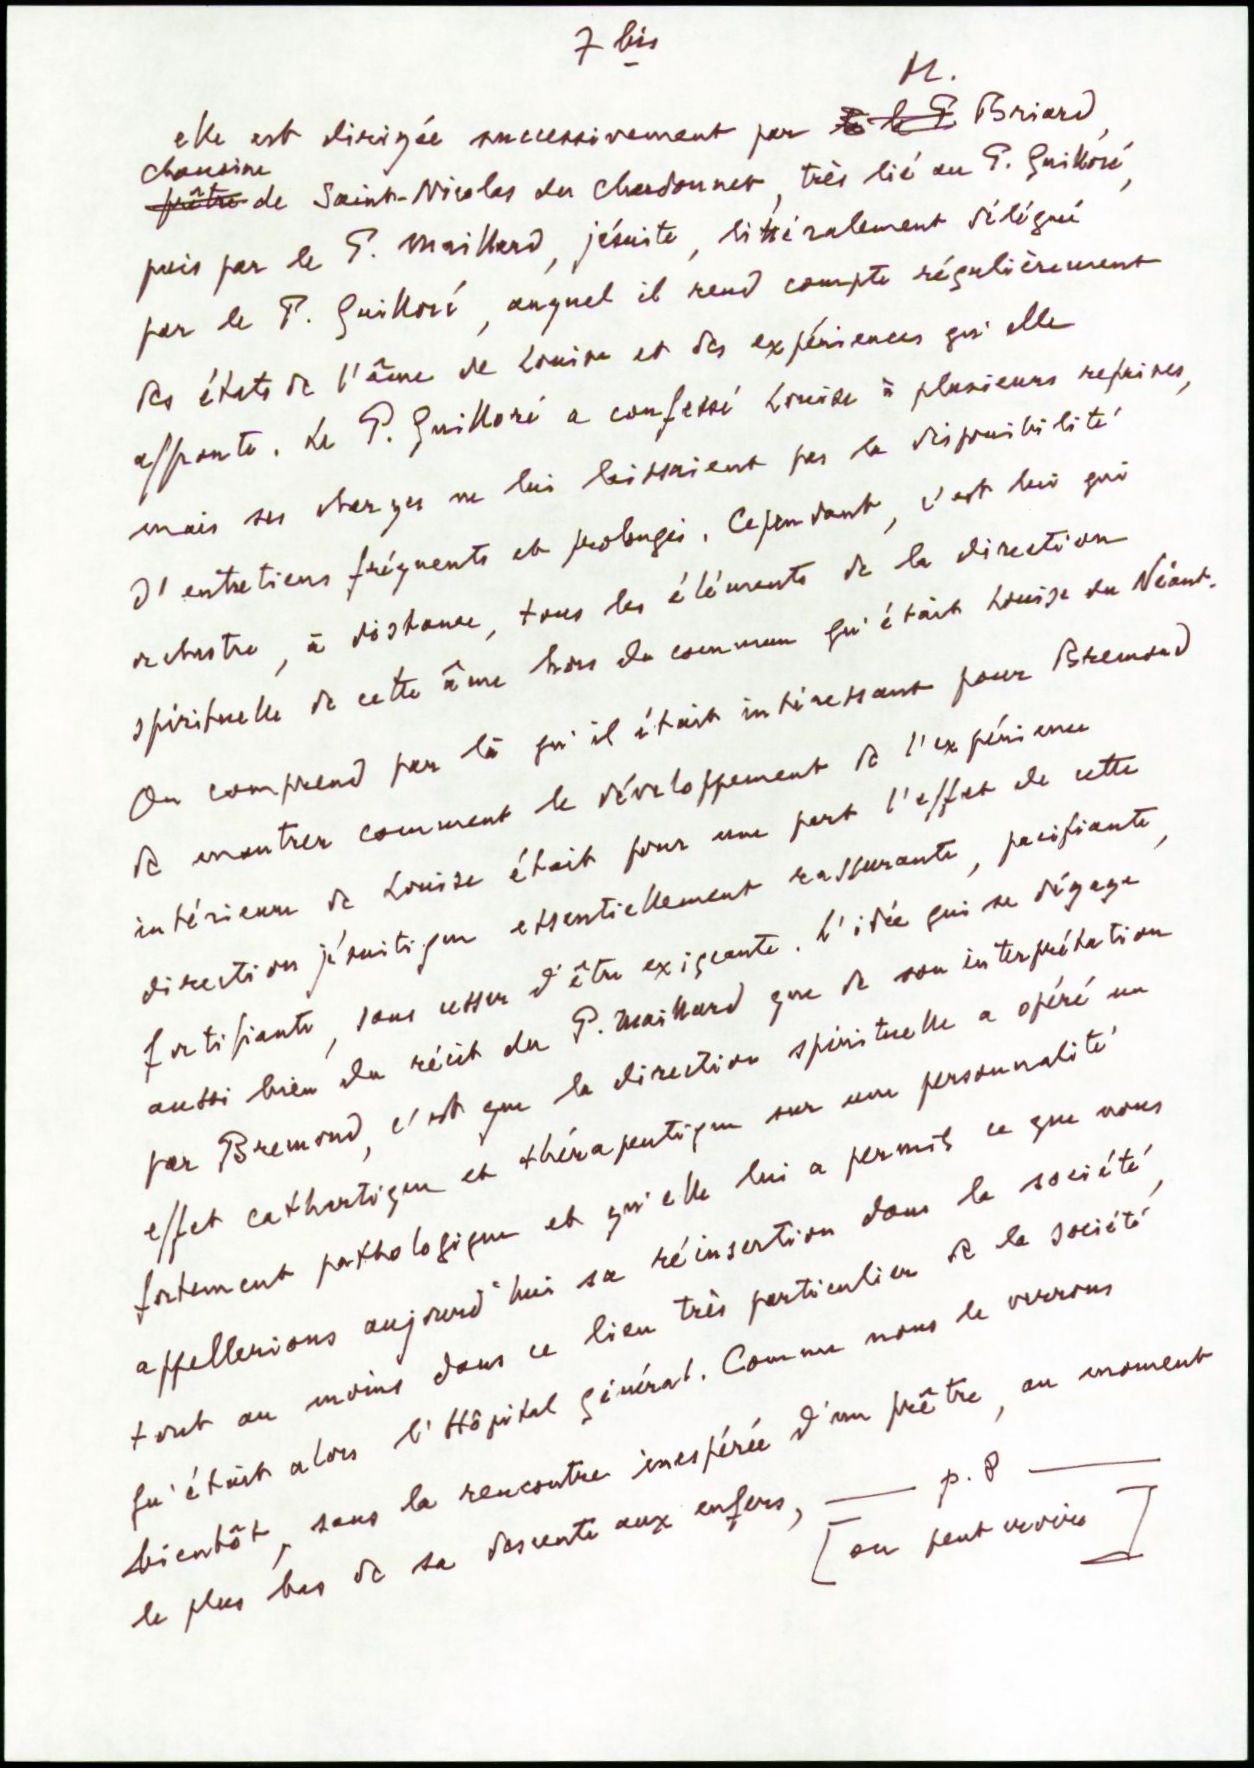 7 bis
M.
elle est dirigée successivement par ~~le P.~~ Briard,
chanoine
~~prêtre~~ de Saint-Nicolas du Chardonnet, très lié au P. Guilloré,
puis par le P. Maillard, jésuite, littéralement délégué
par le P. Guilloré, auquel il rend compte régulièrement
des états de l'âme de Louise et des expériences qu'elle
affronte. Le P. Guilloré a confessé Louise à plusieurs reprises,
mais ses charges ne lui laissaient pas la disponibilité
d'entretiens fréquents et prolongés. Cependant, c'est lui qui
orchestre, à distance, tous les éléments de la direction
spirituelle de cette âme hors du commun qu'était Louise du Néant.
On comprend par là qu'il était intéressant pour Bremond
de montrer comment le développement de l'expérience
intérieure de Louise était pour une part l'effet de cette
direction jésuitique essentiellement rassurante, pacifiante,
fortifiante, sans cesser d'être exigeante. L'idée qui se dégage
aussi bien du récit du P. Maillard que de son interprétation
par Bremond, c'est que la direction spirituelle a opéré un
effet cathartique et thérapeutique sur une personnalité
fortement pathologique et qu'elle lui a permis ce que nous
appellerions aujourd'hui sa réinsertion dans la société,
tout au moins dans ce lieu très particulier de la société
qu'était alors l'Hôpital Général. Comme nous le verrons
bientôt, sans la rencontre inespérée d'un prêtre, au moment
le plus bas de sa descente aux enfers, — p. 8 —
[on peut croire]